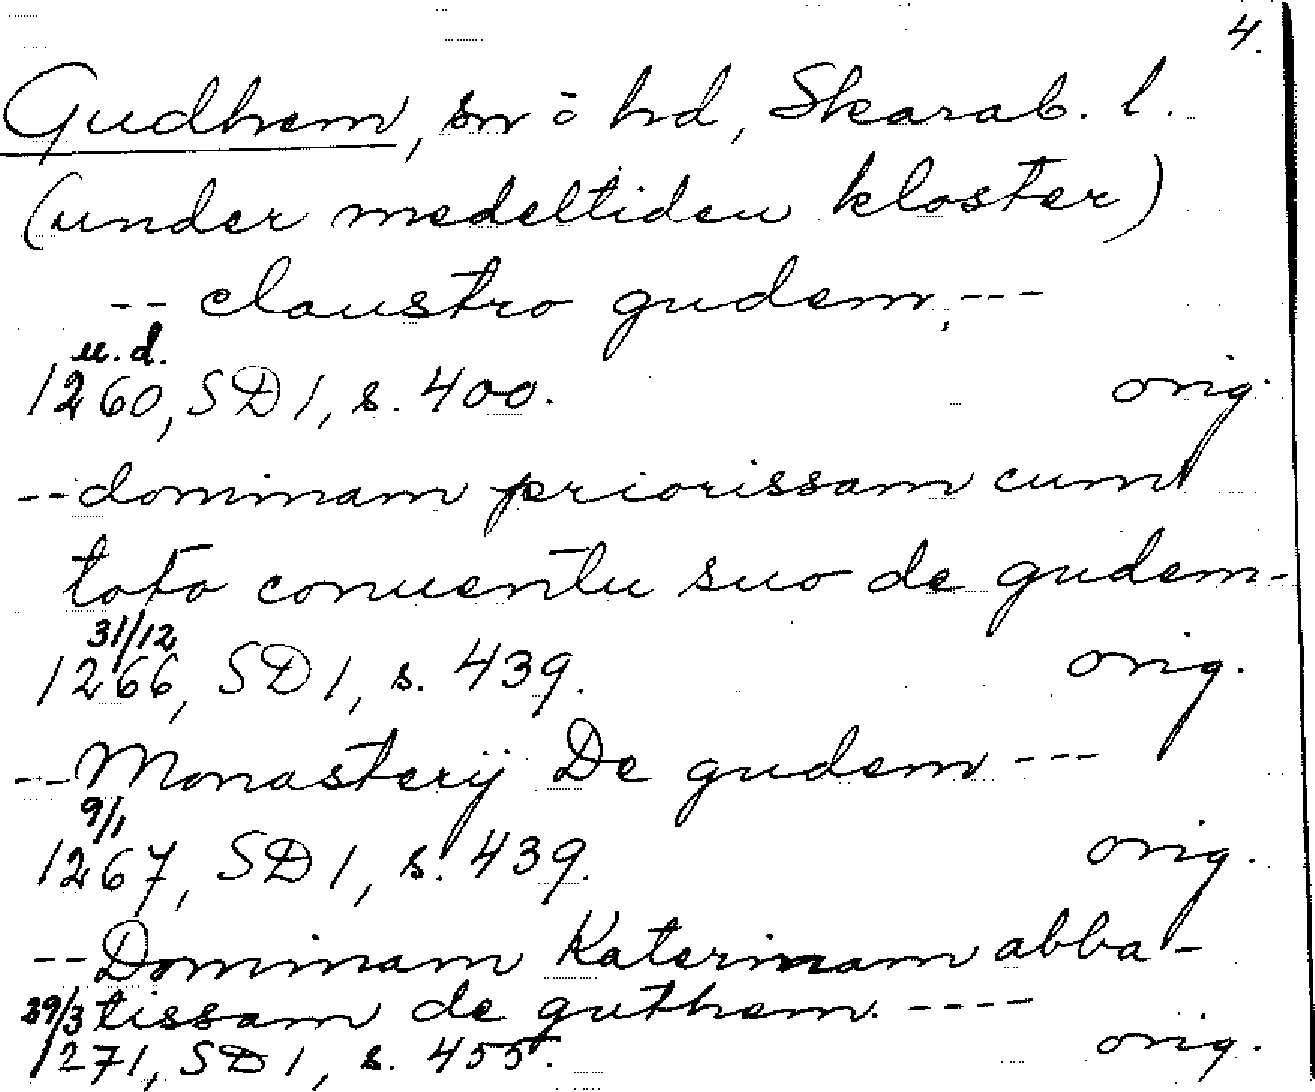 4.
Gudhem, sn o hd, Skarab. l.
(under medeltiden kloster)
-- claustro gudem, ---
u.d.
1260, SD 1, s. 400. orig.
-- dominam priorissam cum
toto conuentu suo de gudem-
31/12
1266, SD 1, s. 439. orig.
-- Monasterij De gudem ---
9/1
1267, SD 1, s. 439. orig.
-- Dominam Katerinam abba-
29/3 tissam de guthem. ----
1271, SD 1, s. 455. orig.